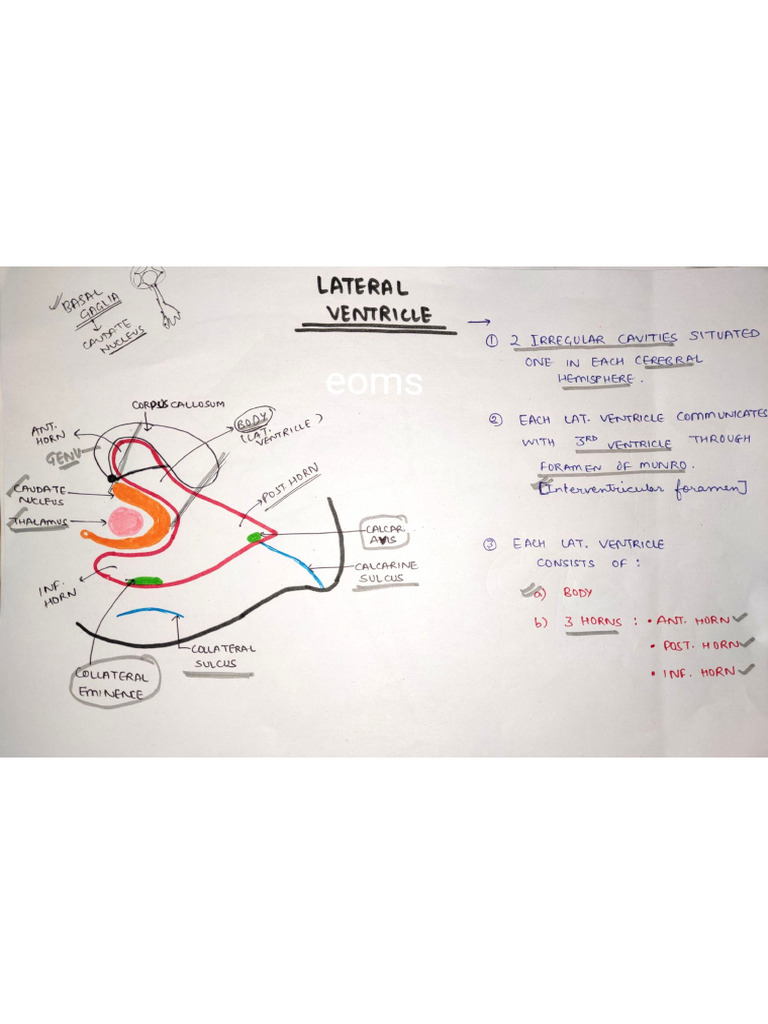 LATERAL
VENTRICLE
BASAL
GAGLIA
CAUDATE
NUCLEUS
eoms
① 2 IRREGULAR CAVITIES SITUATED
ONE IN EACH CEREBRAL
HEMISPHERE.
② EACH LAT. VENTRICLE COMMUNICATES
WITH 3RD VENTRICLE THROUGH
FORAMEN OF MUNRO.
[Interventricular foramen]
③ EACH LAT. VENTRICLE
CONSISTS OF :
a) BODY
b) 3 HORNS : • ANT. HORN
• POST. HORN
• INF. HORN
CORPUS CALLOSUM
ANT.
HORN
GENU
BODY
(LAT.
VENTRICLE)
POST. HORN
CAUDATE
NUCLEUS
THALAMUS
CALCAR
AVIS
CALCARINE
SULCUS
INF.
HORN
COLLATERAL
SULCUS
COLLATERAL
EMINENCE